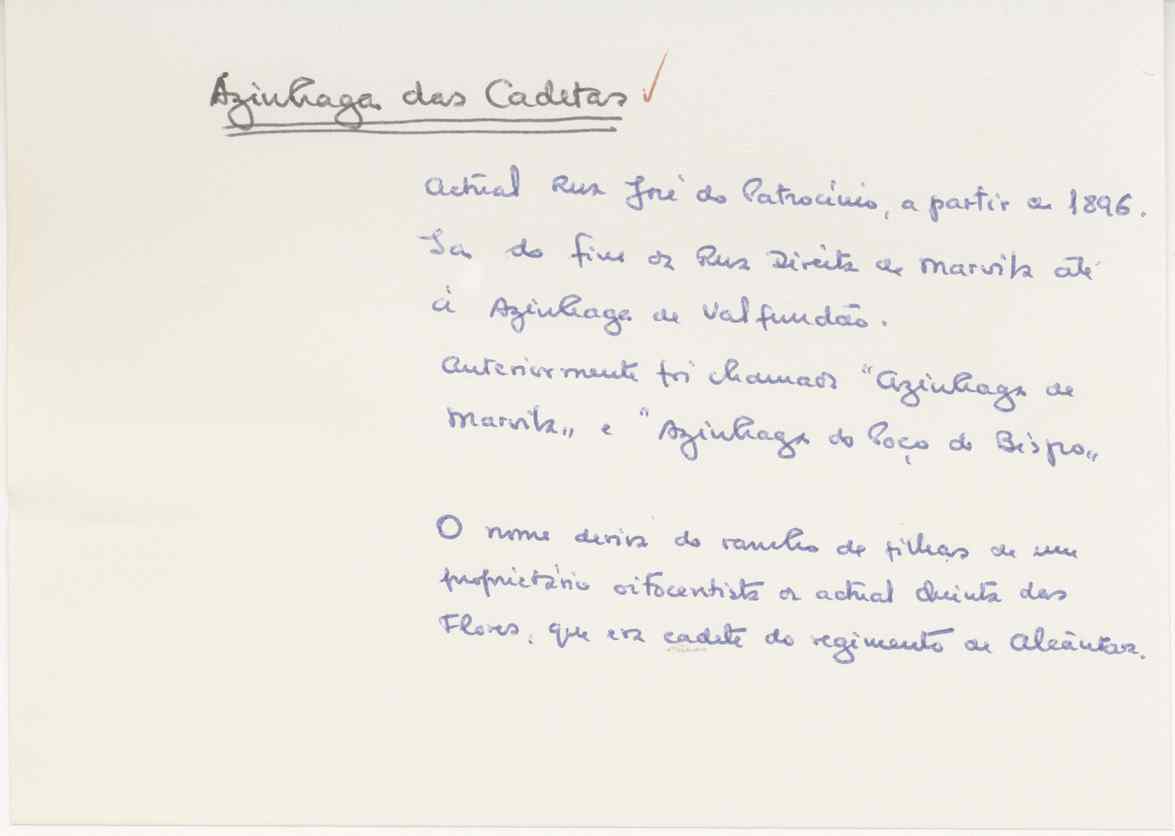 Azinhaga das Cadetas
Actual Rua José do Patrocínio, a partir de 1896.
Ia do fim da Rua Direita de Marvila até
à Azinhaga de Valfundão.
Anteriormente foi chamada "Azinhaga de
Marvila" e "Azinhaga do Poço do Bispo"
O nome deriva do rancho de filhas de um
proprietário oitocentista da actual Quinta das
Flores, que era cadete do regimento de Alcântara.